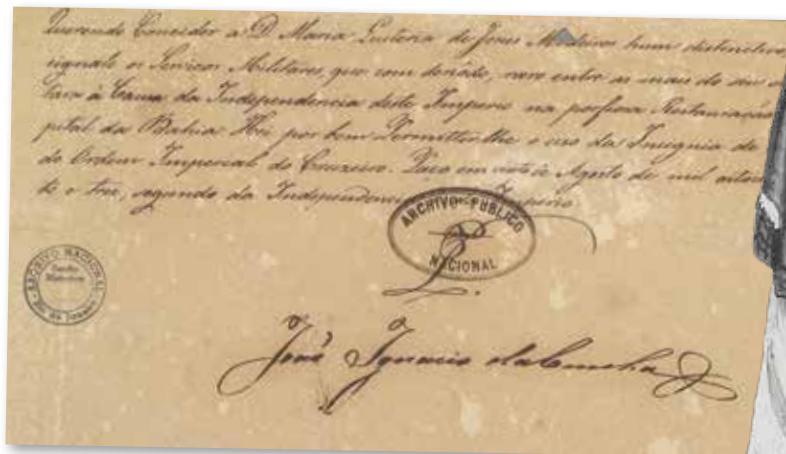 Querendo Conceder a D Maria Quiteria de Jesus Medeiros hum distinctivo,
signale os Serviços Militares, que com denodo, raro entre as mais do seu
á Causa da Independencia deste Imperio na porfiosa Restauração
pital da Bahia Hei por bem Permittir-lhe o uso da Insignia de
do Ordem Imperial do Cruzeiro. Paço em vinte de Agosto de mil oitoce
te e tres, segundo da Independencia Imperio
ARCHIVO PUBLICO
NACIONAL
ARCHIVO NACIONAL
Rio de Janeiro
José Ignacio da Cunha